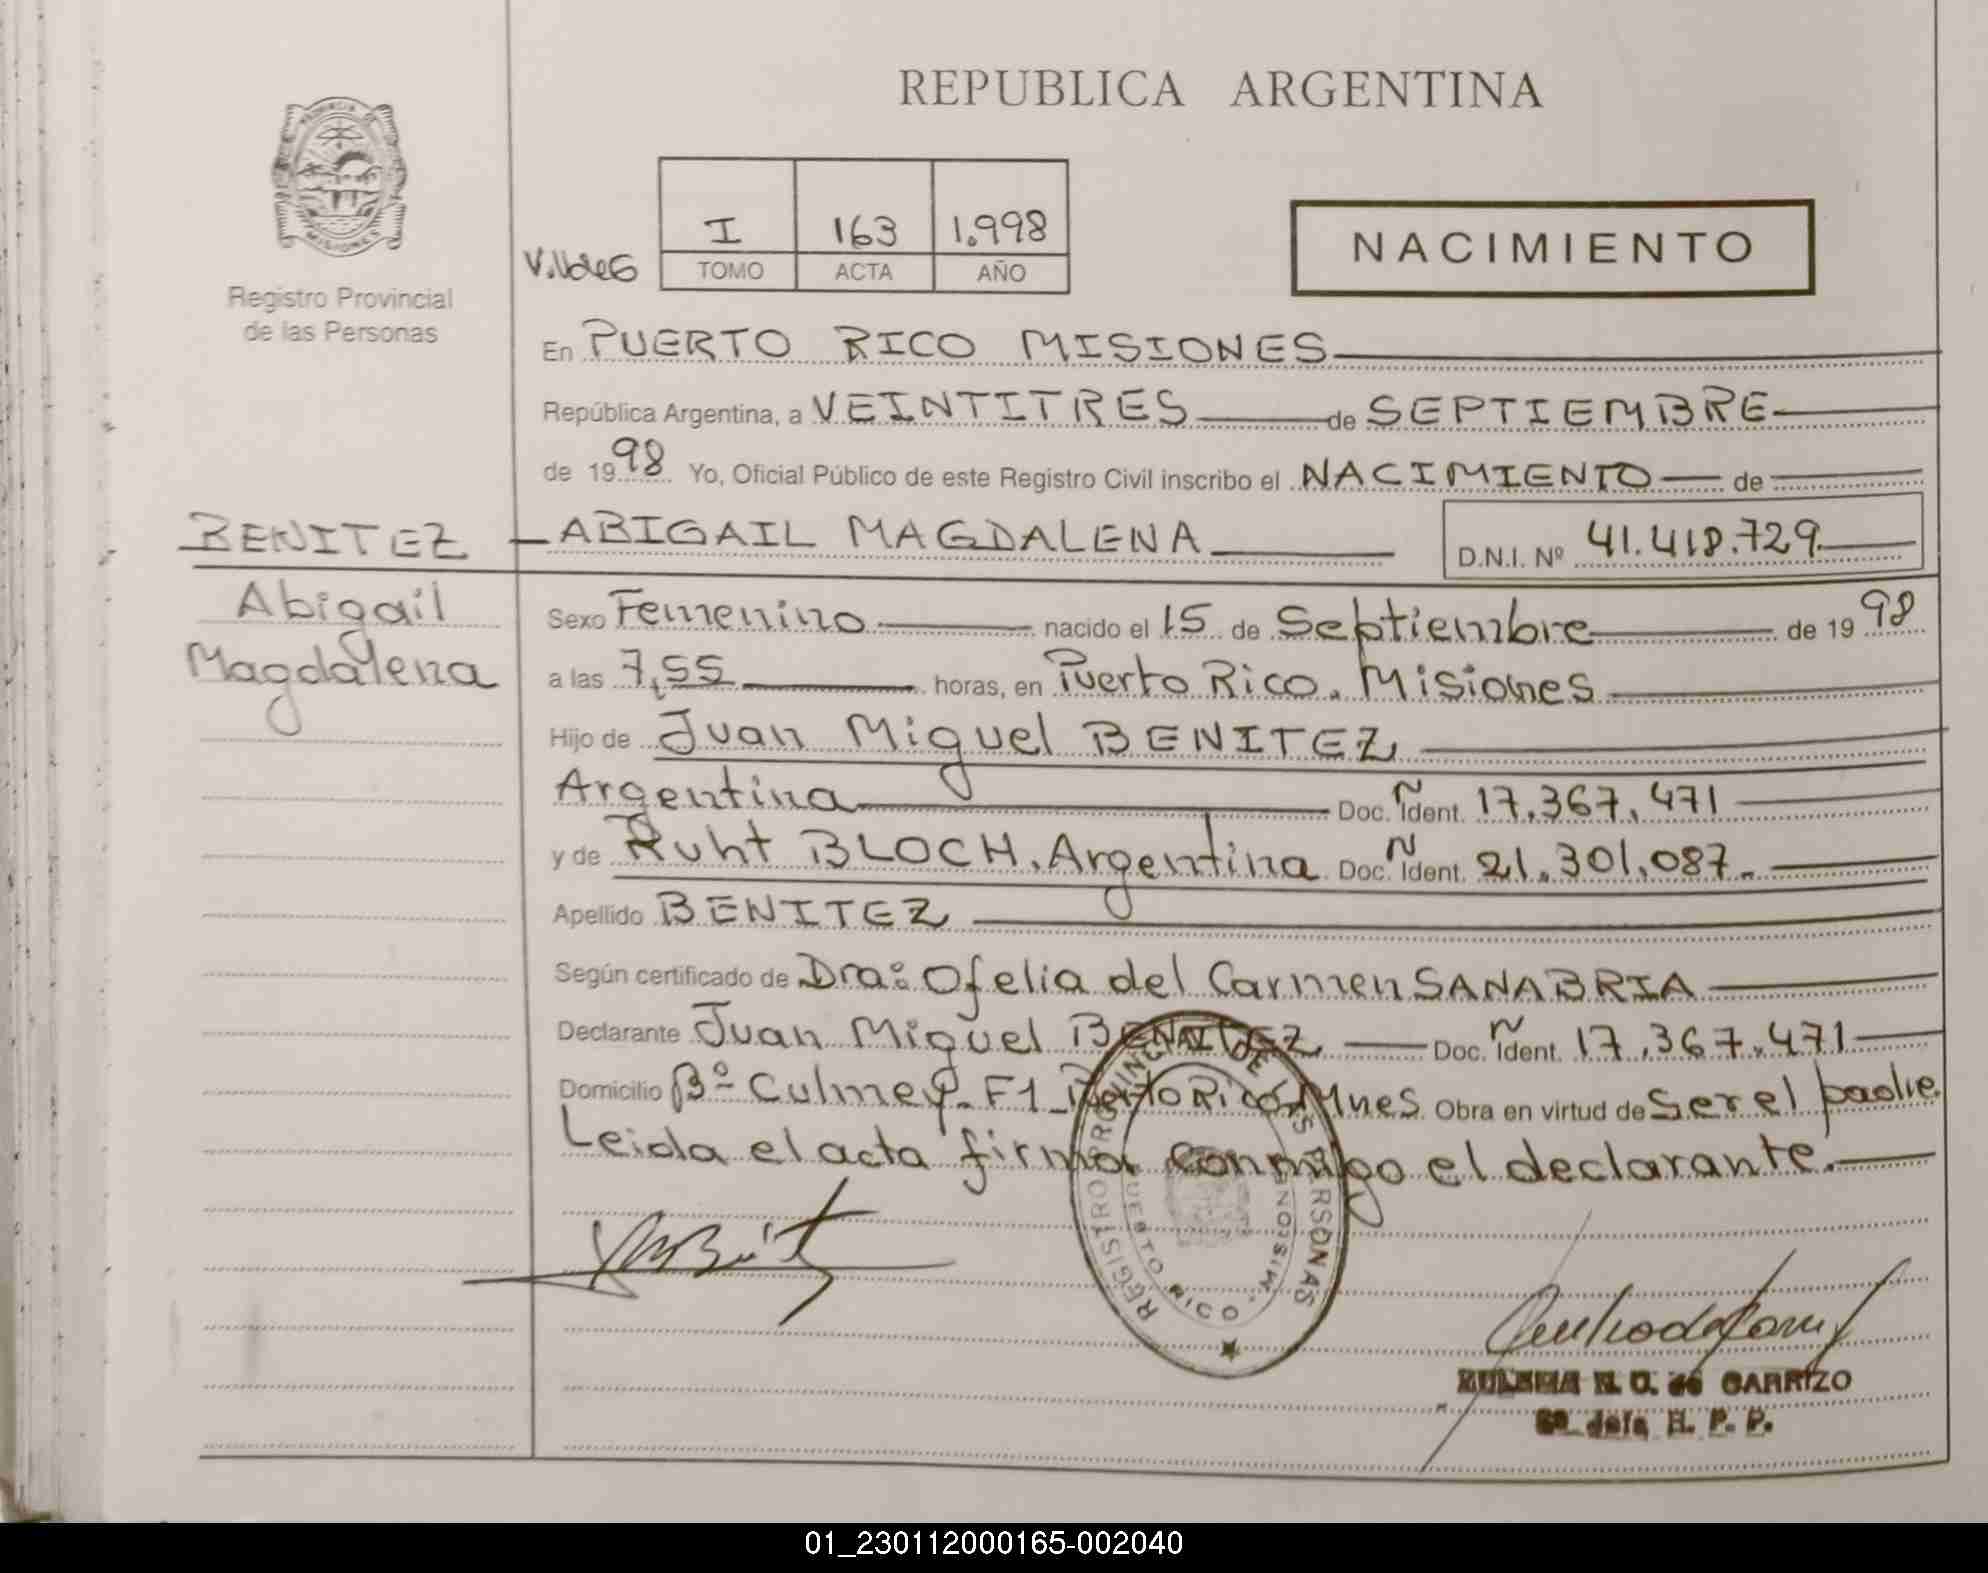 REPUBLICA ARGENTINA
PROVINCIA DE
MISIONES
Registro Provincial
de las Personas
I 163 1.998
TOMO ACTA AÑO
NACIMIENTO
En PUERTO RICO MISIONES
República Argentina, a VEINTITRES de SEPTIEMBRE
de 1998 Yo, Oficial Público de este Registro Civil inscribo el NACIMIENTO de
BENITEZ ABIGAIL MAGDALENA D.N.I. Nº 41.418.729
Abigail
Magdalena
Sexo Femenino nacido el 15 de Septiembre de 1998
a las 7,55 horas, en Puerto Rico. Misiones
Hijo de Juan Miguel BENITEZ
Argentina Doc. Ident. 17.367.471
y de Ruht BLOCH. Argentina Doc. Ident. 21.301.087.
Apellido BENITEZ
Según certificado de Dra: Ofelia del Carmen SANABRIA
Declarante Juan Miguel BENITEZ Doc. Ident. 17.367.471
Domicilio Bº Culmey. F1 Puerto Rico Mnes. Obra en virtud de Ser el padre.
Leida el acta firma conmigo el declarante.
REGISTRO PROVINCIAL DE LAS PERSONAS
PUERTO RICO - MISIONES
de CARRIZO
R. P. P.
01_230112000165-002040